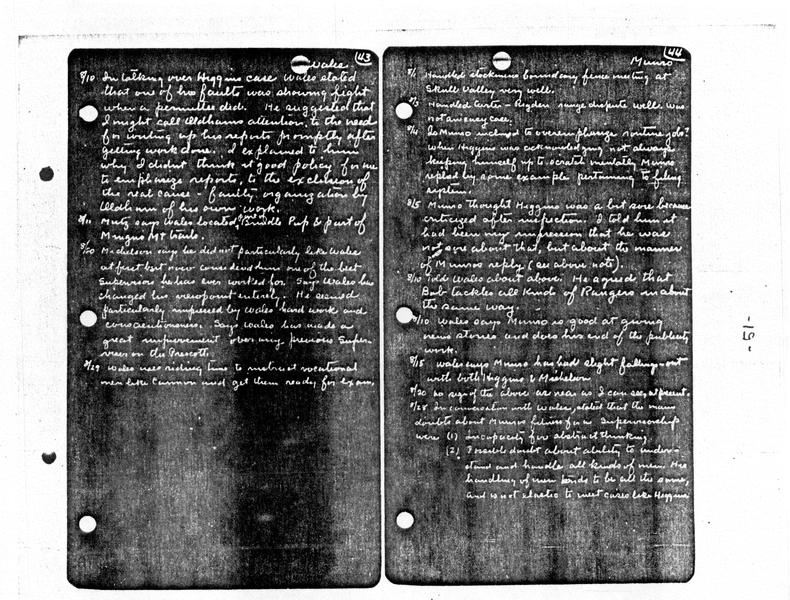 43
Wales
8/10 In talking over Higgins case Wales stated
that one of his faults was showing fight
when a permittee did. He suggested that
I might call Oldhams attention to the need
for writing up his reports promptly after
getting work done. I explained to him
why I didn't think it good policy for me
to emphasize reports, to the exclusion of
the real cause - faulty organization by
Oldham of his own work.
8/11 Muntz says Wales located Brindle Pup & part of
Mingus Mt trails
8/20 Michelson says he did not particularly like Wales
at first but now considered him one of the best
Supervisors he has ever worked for. Says Wales has
changed his viewpoint entirely. He seemed
particularly impressed by Wales hard work and
conscientiousness. Says Wales has made a
great improvement over any previous Super-
visor on the Prescott.
8/29 Wales uses riding time to instruct vocational
men like Cannon and get them ready for exam.
44
Munro
8/1 Handled stockmens boundary fence meeting at
Skull Valley very well.
8/3 Handled Carter - Rigden range dispute well. Was
not an easy case.
8/4 Is Munro inclined to overemphasize routine job?
When Higgins was acknowledging not always
keeping himself up to scratch mentally Munro
replied by some example pertaining to filing
system.
8/5 Munro thought Higgins was a bit sore because
criticized after inspection. I told him it
had been my impression that he was
not sore about that, but about the manner
of Munros reply (see above note).
8/10 Told Wales about above. He agreed that
Bob tackles all kinds of Rangers in about
the same way.
8/10 Wales says Munro is good at giving
news stories and does his end of the publicity
work.
8/15 Wales says Munro has had slight falling-out
with both Higgins & Michelson
8/20 no sign of the above as near as I can see, at present.
8/28 In conversation with Wales, stated that the main
doubts about Munros fitness for a Supervisorship
were (1) incapacity for abstract thinking.
(2) Possible doubt about ability to under-
stand and handle all kinds of men. His
handling of men tends to be all the same,
and is not elastic to meet cases like Higgins
-51-